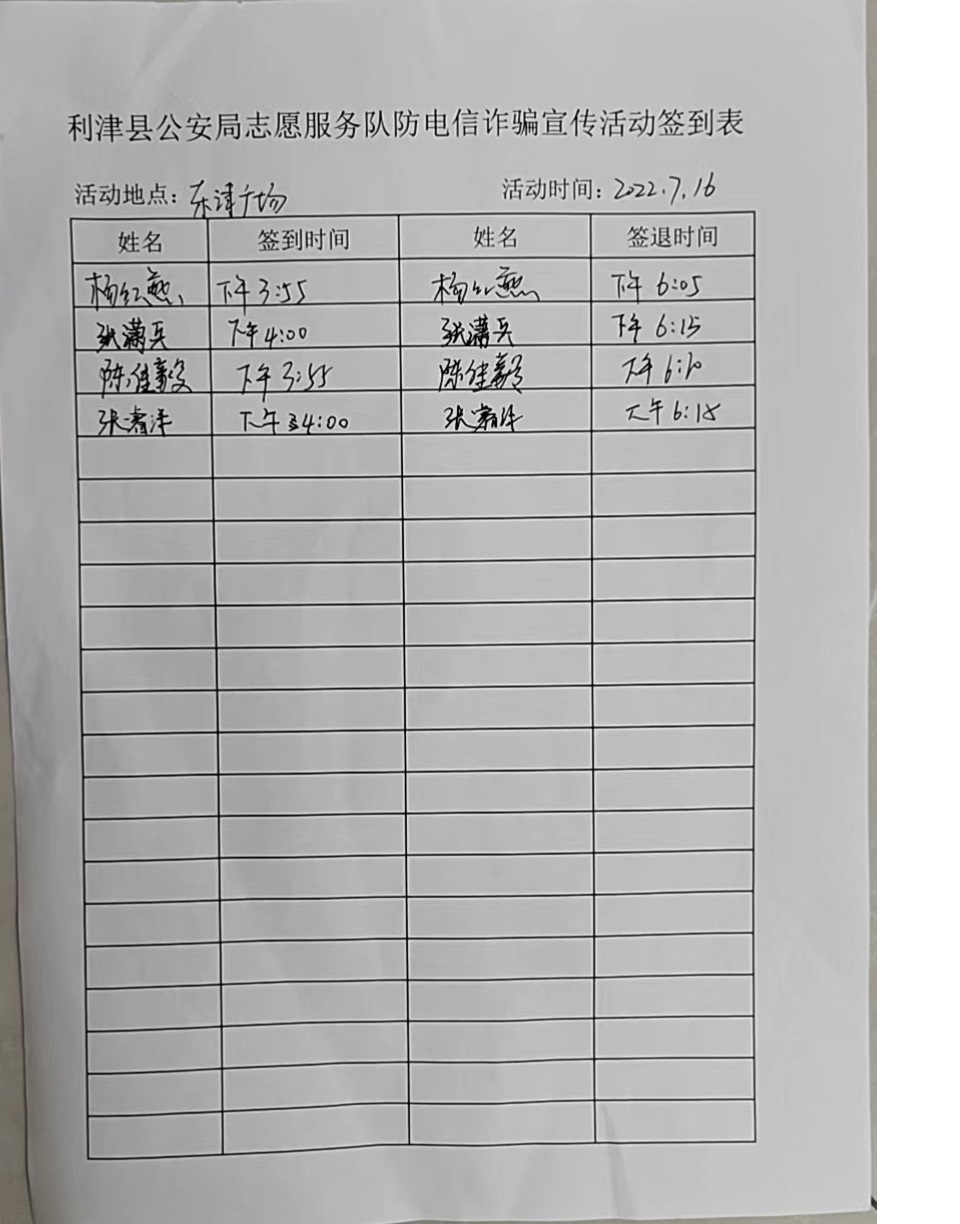 利津县公安局志愿服务队防电信诈骗宣传活动签到表
活动地点：东津广场 活动时间：2022.7.16
姓名 签到时间 姓名 签退时间
杨红燕 下午3:55 杨红燕 下午6:05
张满兵 下午4:00 张满兵 下午6:15
陈佳毅 下午3:55 陈佳毅 下午6:10
下午4:00 下午6:18